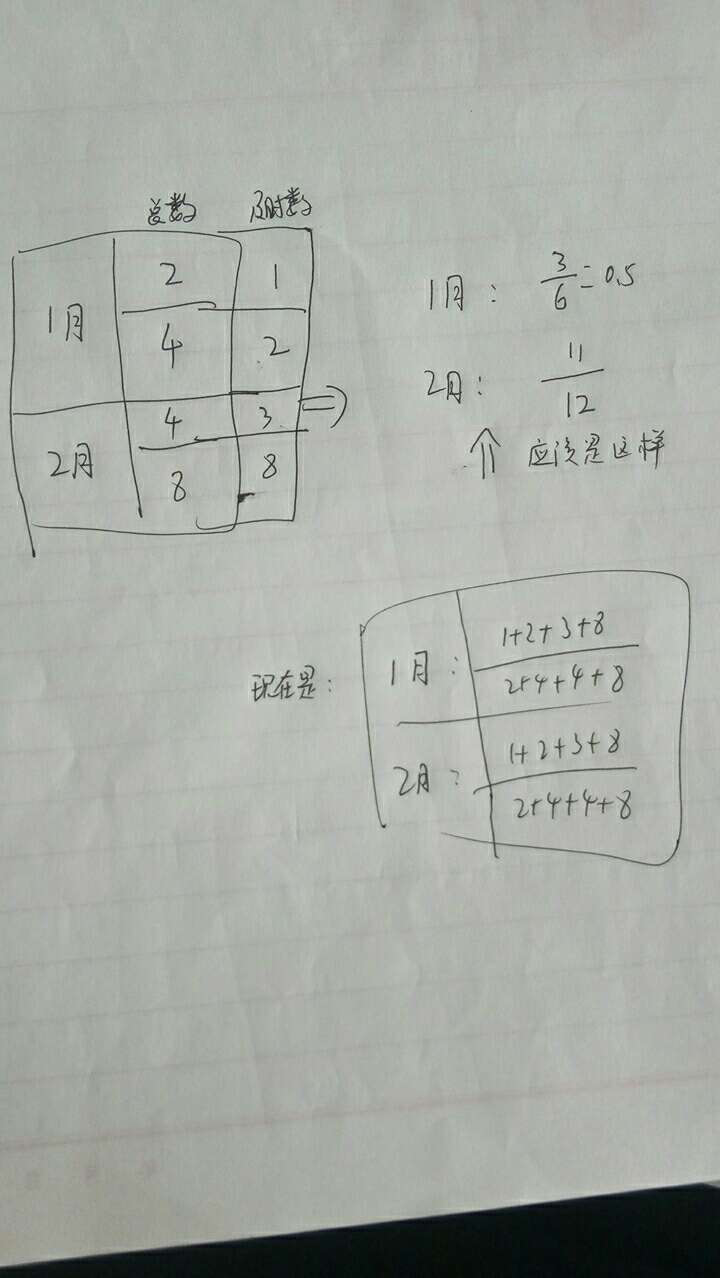 总数 及时数
1月 2 1
4 2
2月 4 3
8 8
⇒
1月: 3/6=0.5
2月: 11/12
⇑ 应该是这样
现在是:
1月: 1+2+3+8/2+4+4+8
2月: 1+2+3+8/2+4+4+8